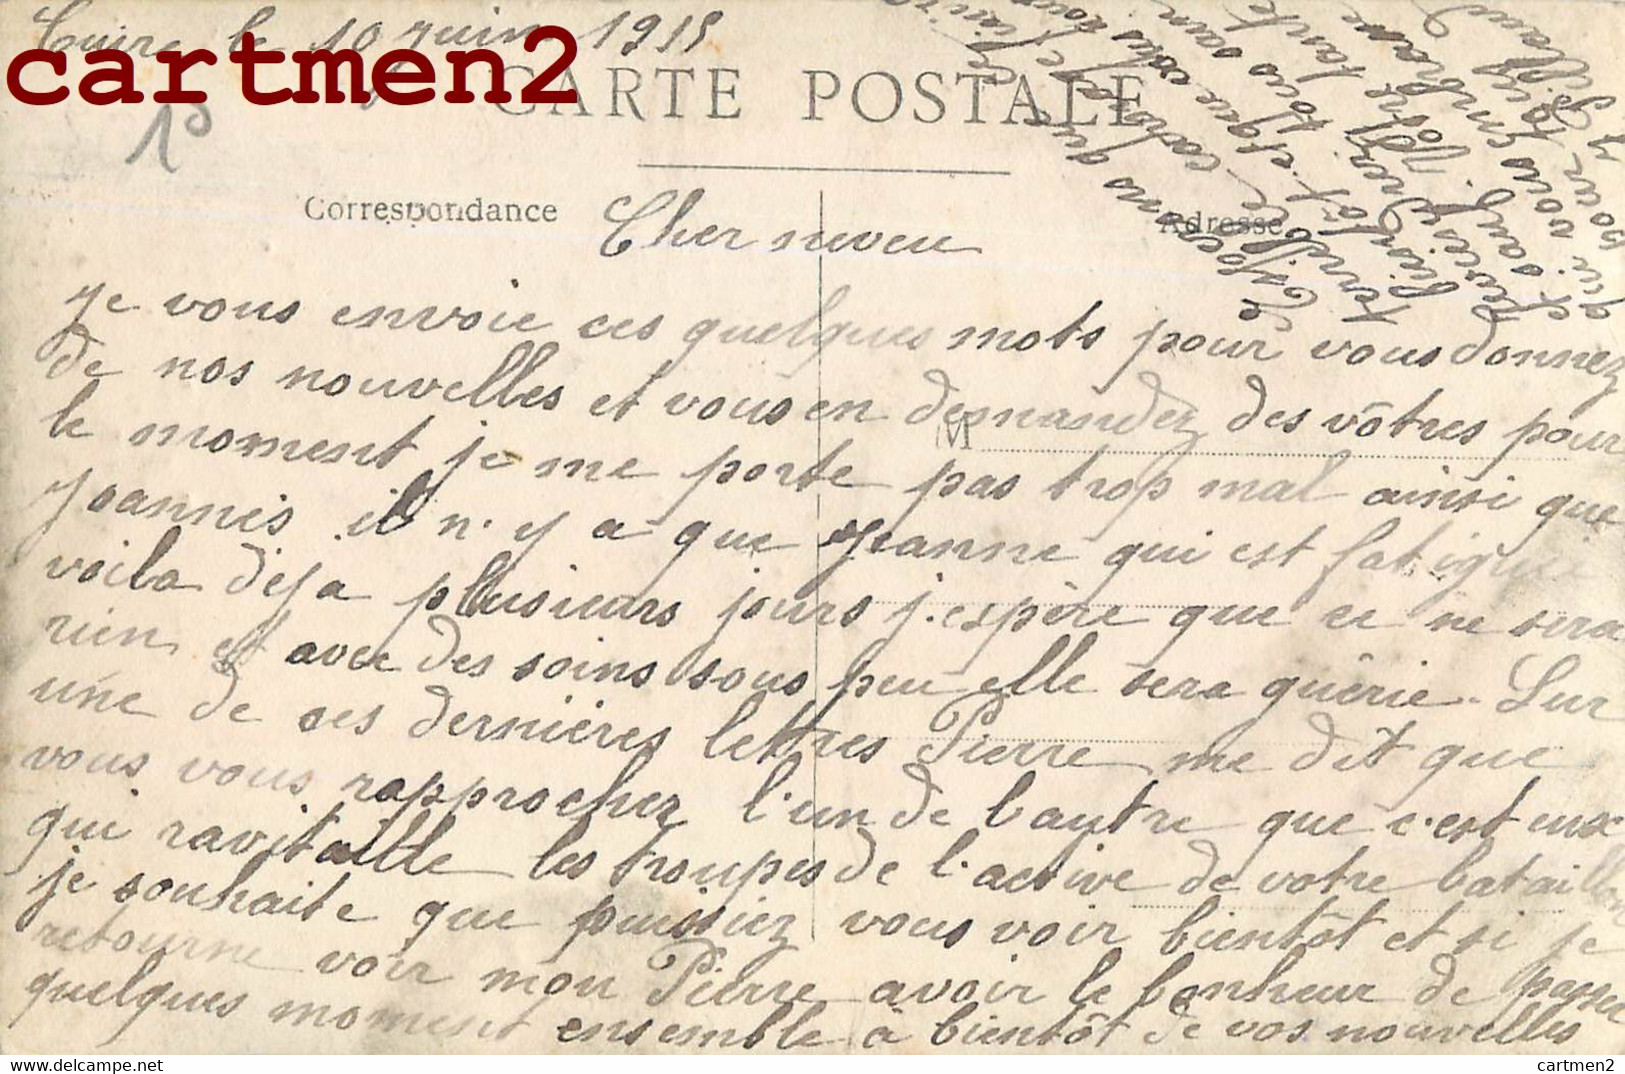 Cuire le 10 juin 1915
cartmen2
10
CARTE POSTALE
Correspondance
Adresse
M
Cher neveu
Je vous envoie ces quelques mots pour vous donnez
de nos nouvelles et vous en demandez des vôtres pour
le moment je me porte pas trop mal ainsi que
Joannis il n'y a que Jeanne qui est fatiguée
voila déja plusieurs jours j'espère que ce ne sera
rien et avec des soins sous peu elle sera guérie. Sur
une de ces dernières lettres Pierre me dit que
vous vous rapprochez l'un de l'autre que c'est eux
qui ravitaille les troupes de l'active de votre bataillon
je souhaite que puissiez vous voir bientôt et si je
retourne voir mon Pierre avoir le bonheur de passer
quelques moment ensemble à bientôt de vos nouvelles
Espérons que
terrible
et que vous
plutôt et tous
sauf. Votre tante
qui vous embrasse
pour
cartmen2